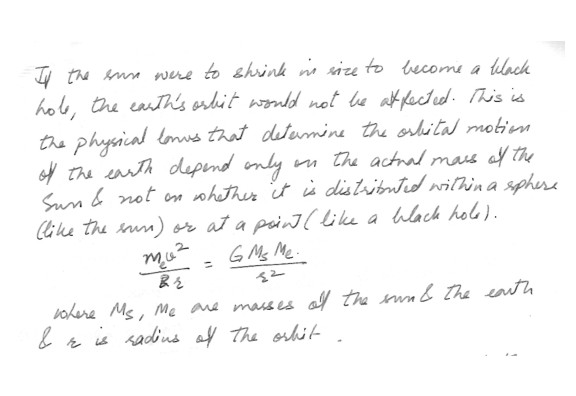 If the sun were to shrink in size to become a black
hole, the earth's orbit would not be affected. This is
the physical laws that determine the orbital motion
of the earth depend only on the actual mass of the
Sun & not on whether it is distributed within a sphere
(like the sun) or at a point (like a black hole).
Mev²/r = G Ms Me/r²
where Ms, Me are masses of the sun & the earth
& r is radius of the orbit.